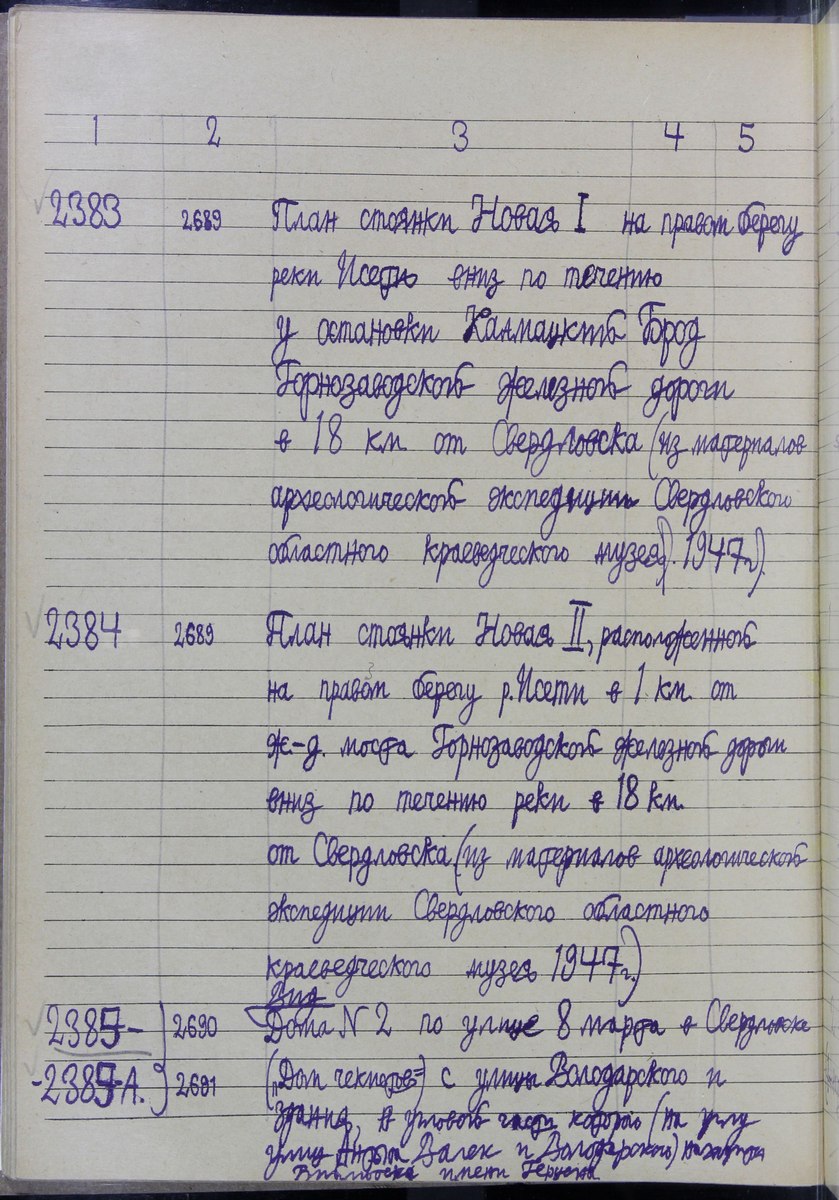 1 2 3 4 5
2383 2689 План стоянки Новая I на правом берегу
реки Исети вниз по течению
у остановки Калмацкий Брод
Горнозаводской железной дороги
в 18 км от Свердловска (из материалов
археологической экспедиции Свердловского
областного краеведческого музея). 1947г.)
2384 2689 План стоянки Новая II, расположенной
на правом берегу р. Исети в 1 км от
ж-д. моста Горнозаводской железной дороги
вниз по течению реки в 18 км.
от Свердловска (из материалов археологической
экспедиции Свердловского областного
краеведческого музея 1947г.)
Вид
2385- 2690 Дома N 2 по улице 8 марта в Свердловске
-2385-А. 2691 („Дом чекистов") с улицы Володарского и
здания, в угловой части которой (на углу
улиц Антона Валек и Володарского) находится
Библиотека имени Герцена